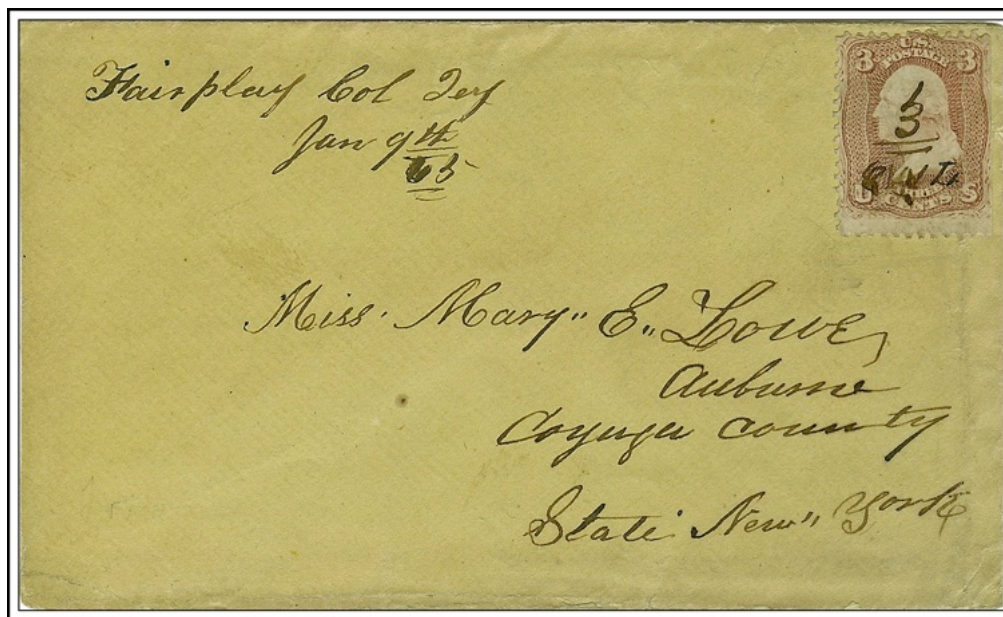 Fairplay Col Ter
Jan 9th
65
3 U.S. 3
POSTAGE
3
THREE
U CENTS S
Miss. Mary" E." Lowe,
Auburne
Coyuga county
State New" York